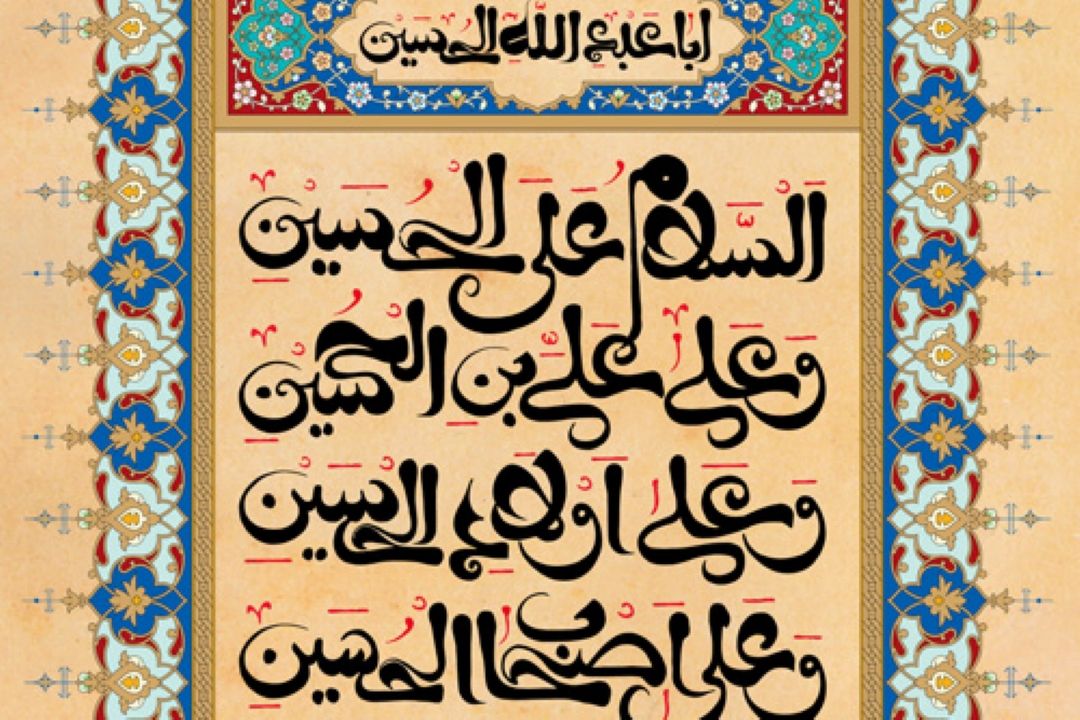 ابا عبد الله الحسین
اَلسَّلامُ عَلَی الْحُسَیْنِ
وَعَلی عَلِیِّ بْنِ الْحُسَیْنِ
وَعَلی اَوْلادِ الْحُسَیْنِ
وَعَلی اَصْحابِ الْحُسَیْنِ